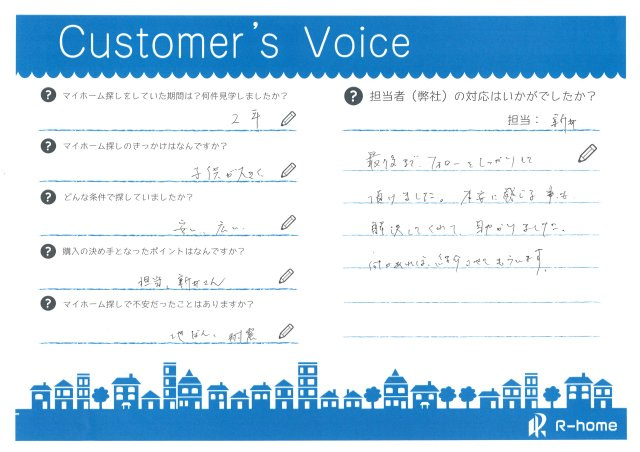 Customer's Voice
? マイホーム探しをしていた期間は？何件見学しましたか？
2年
? マイホーム探しのきっかけはなんですか？
子供が大きく
? どんな条件で探していましたか？
安い、広い
? 購入の決め手となったポイントはなんですか？
担当、新井さん
? マイホーム探しで不安だったことはありますか？
地ばん、
? 担当者（弊社）の対応はいかがでしたか？
担当： 新井
最後まで、フォローをしっかりして
頂けました。不安に感じる事も
解決してくれて、助かりました。
何かあれば、
R-home